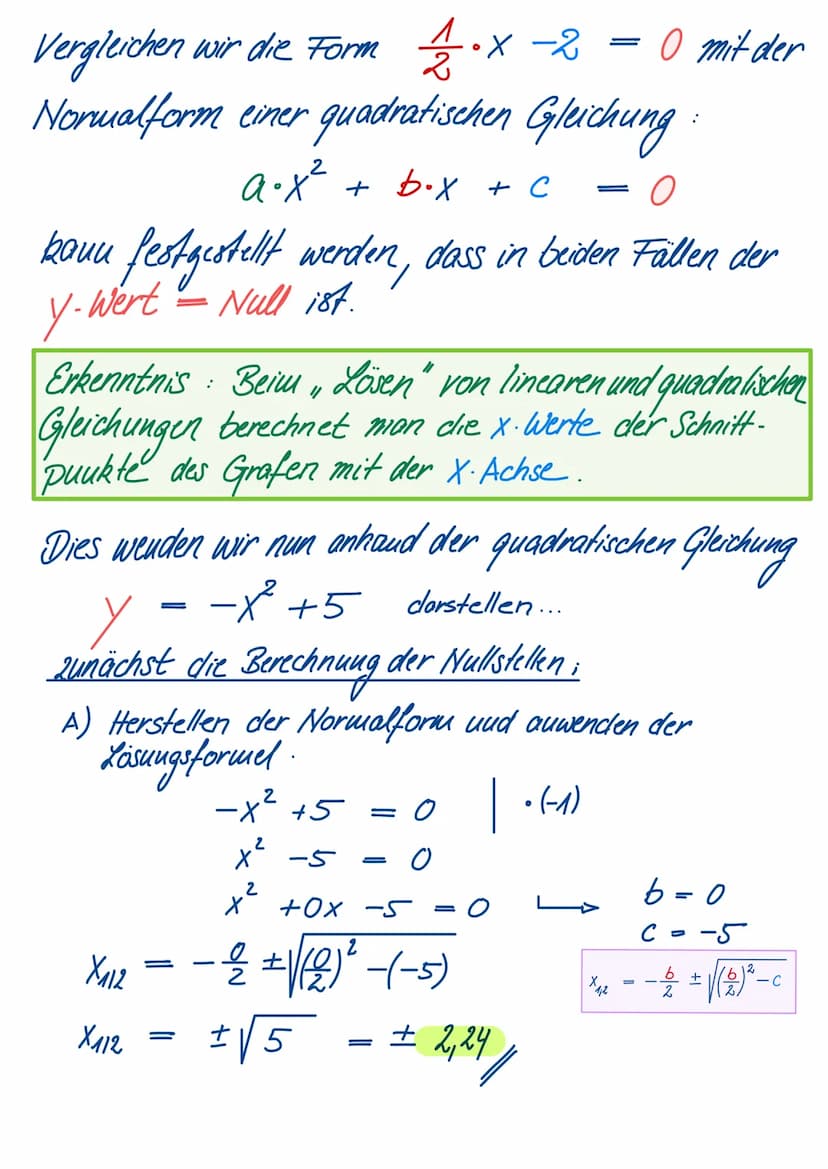 Vergleichen wir die Form 1/2 · x - 2 = 0 mit der
Normalform einer quadratischen Gleichung :
a·x² + b·x + c = 0
kann festgestellt werden, dass in beiden Fällen der
y-Wert = Null ist.
Erkenntnis : Beim „Lösen" von linearen und quadratischen
Gleichungen berechnet man die x-Werte der Schnitt-
punkte des Grafen mit der X-Achse.
Dies wenden wir nun anhand der quadratischen Gleichung
y = -x² + 5 darstellen...
zunächst die Berechnung der Nullstellen;
A) Herstellen der Normalform und anwenden der
Lösungsformel.
-x² + 5 = 0 | · (-1)
x² - 5 = 0
x² + 0x - 5 = 0 ↳ b = 0
c = -5
X1/2 = - 0/2 ± √((0/2)² - (-5))
x1,2 = - b/2 ± √((b/2)² - c)
X1/2 = ± √5 = ± 2,24